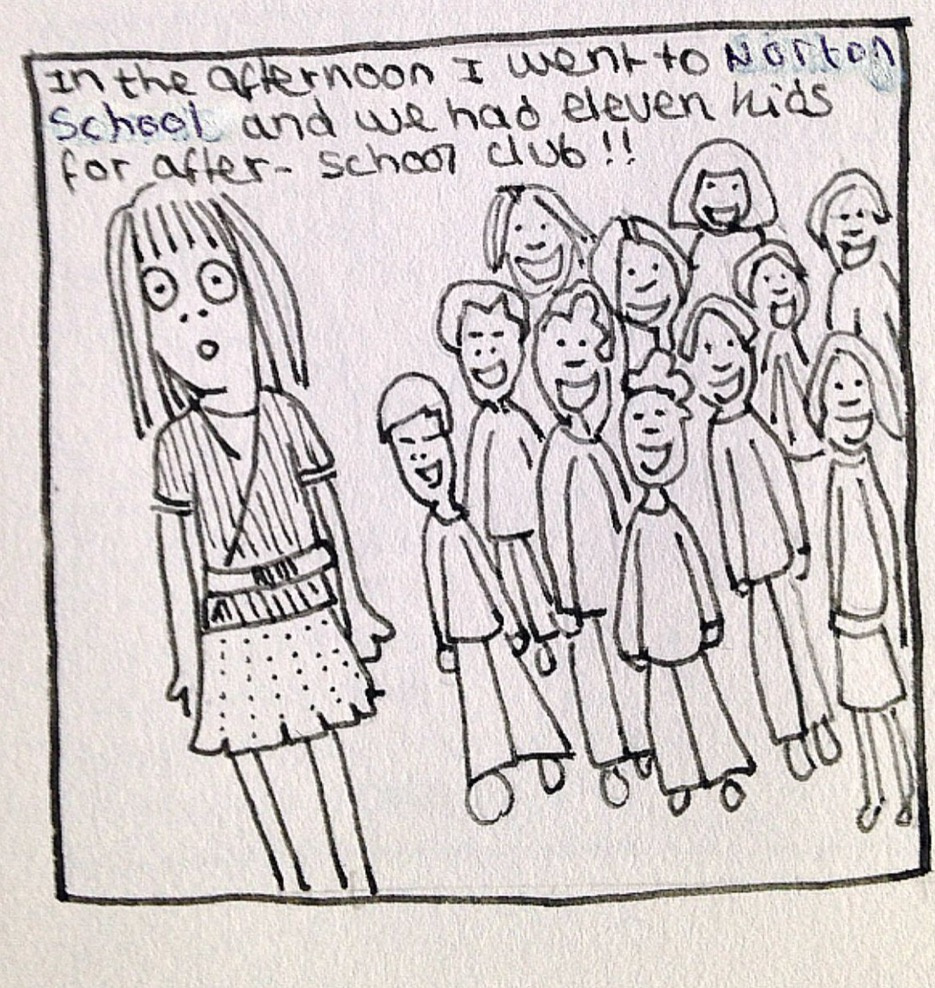 In the afternoon I went to Norton
School and we had eleven kids
for after- school club!!